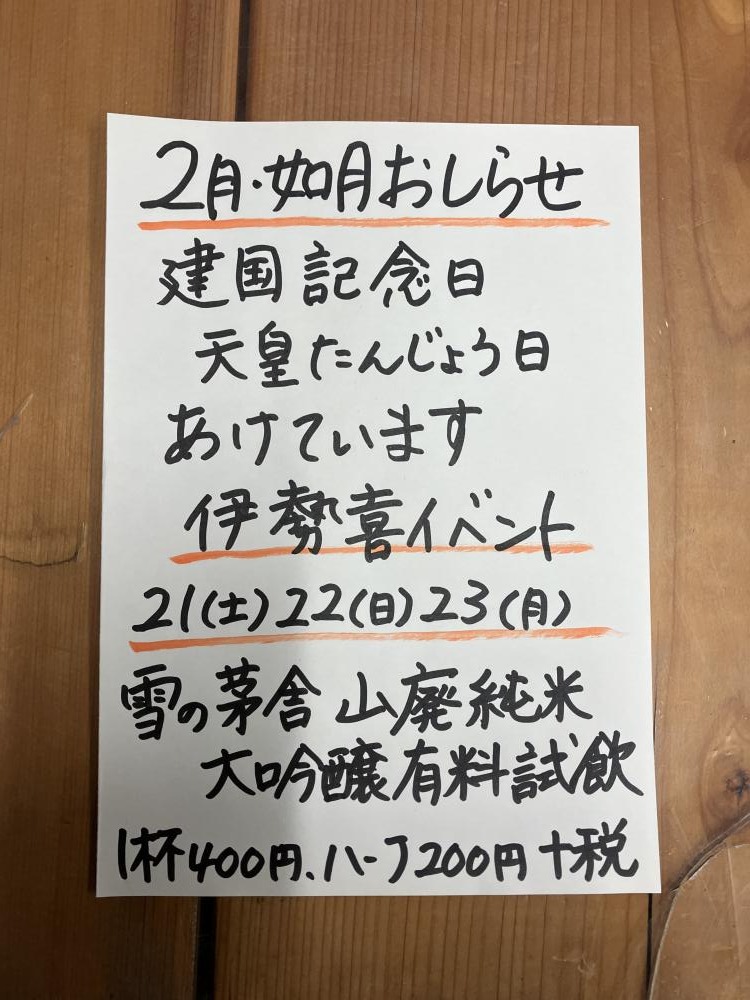 2月・如月おしらせ
建国記念日
天皇たんじょう日
あけています
伊勢喜イベント
21(土)22(日)23(月)
雪の茅舎 山廃純米
大吟醸有料試飲
1杯400円、ハーフ200円+税